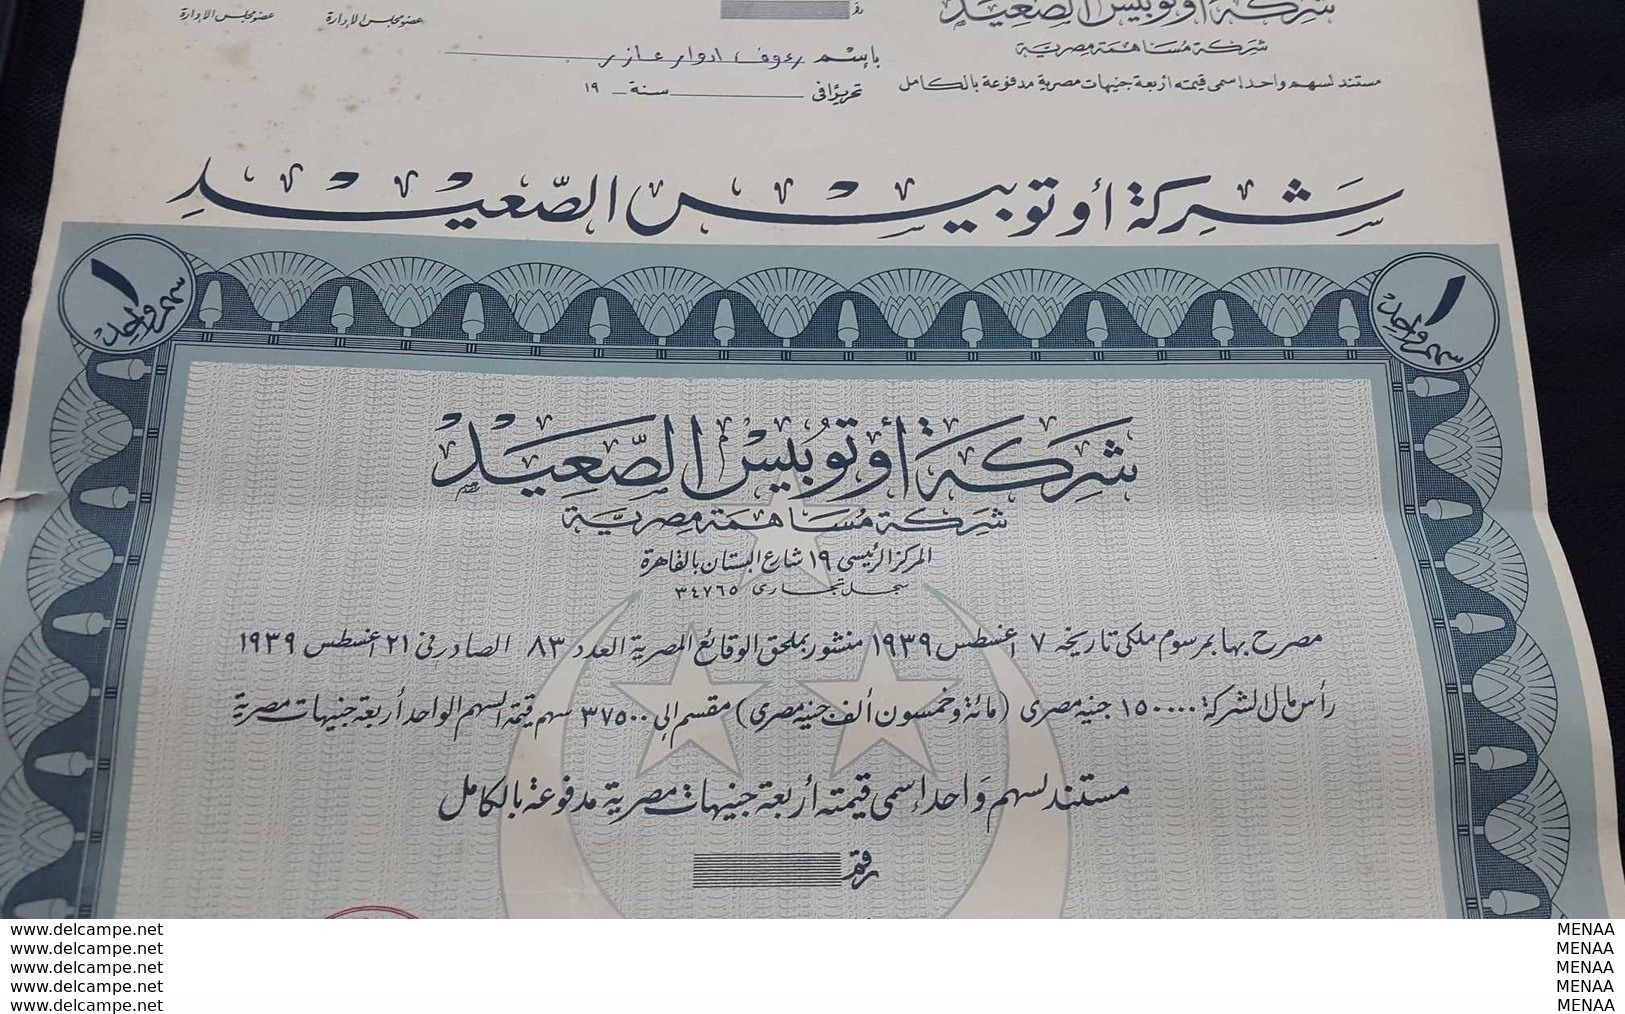 شركة أوتوبيس الصعيد
شركة مساهمة مصرية
مستند لسهم واحد إسمى قيمته أربعة جنيهات مصرية مدفوعة بالكامل
رقم
عضو مجلس الإدارة
عضو مجلس الإدارة
بإسم رءوف ادوار عازر
تحريرًا فى سنة ١٩
شركة أوتوبيس الصّعيد
١
سهم واحد
١
سهم واحد
شركة أوتوبيس الصّعيد
شركة مساهمة مصرية
المركز الرئيسى ١٩ شارع البستان بالقاهرة
سجل تجارى ٣٤٧٦٥
مصرح بها بمرسوم ملكى تاريخه ٧ اغسطس ١٩٣٩ منشور بملحق الوقائع المصرية العدد ٨٣ الصادر فى ٢١ اغسطس ١٩٣٩
رأس مال الشركة ١٥٠٠٠٠ جنيه مصرى (مائة وخمسون ألف جنيه مصرى) مقسم إلى ٣٧٥٠٠ سهم قيمة السهم الواحد أربعة جنيهات مصرية
مستند لسهم واحد إسمى قيمته أربعة جنيهات مصرية مدفوعة بالكامل
رقم
www.delcampe.net MENAA
www.delcampe.net MENAA
www.delcampe.net MENAA
www.delcampe.net MENAA
www.delcampe.net MENAA